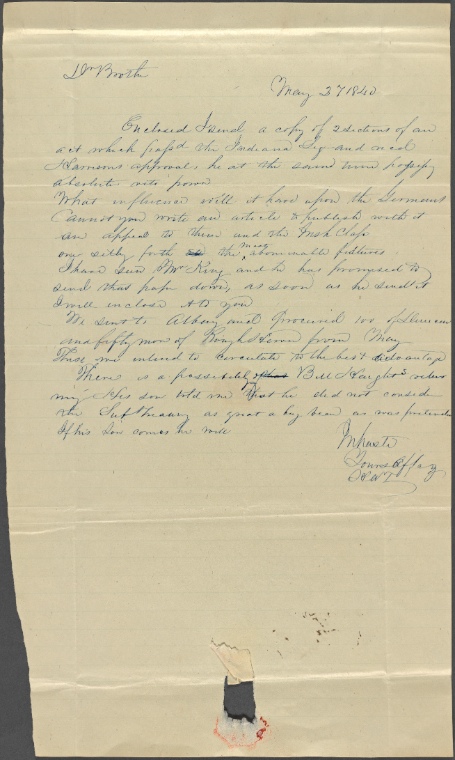 Dr Booth
May 27 1840
Enclosed I send a copy of 2 sections of an
act which passd the Indiana Leg and recd
Harrisons approval, he at the same time possessing
absolute veto power
What influence will it have upon the Germans
Cannot you write an article & publish with it
an appeal to them and the Irish Class
one setting forth the most abominable features
I have seen Mr King and he has promised to
send that paper down, as soon as he sends it
I will inclose it to you
We sent to Albany and procured 100 of
and fifty more of Rough Hewer from
These we intend to circulate to the best advantage
There is a possibility of Bill
ming His son told me that he did not consider
the Sub Treasury as great a bug bear as was pretended
If his Son comes he will
In haste
Yours &c